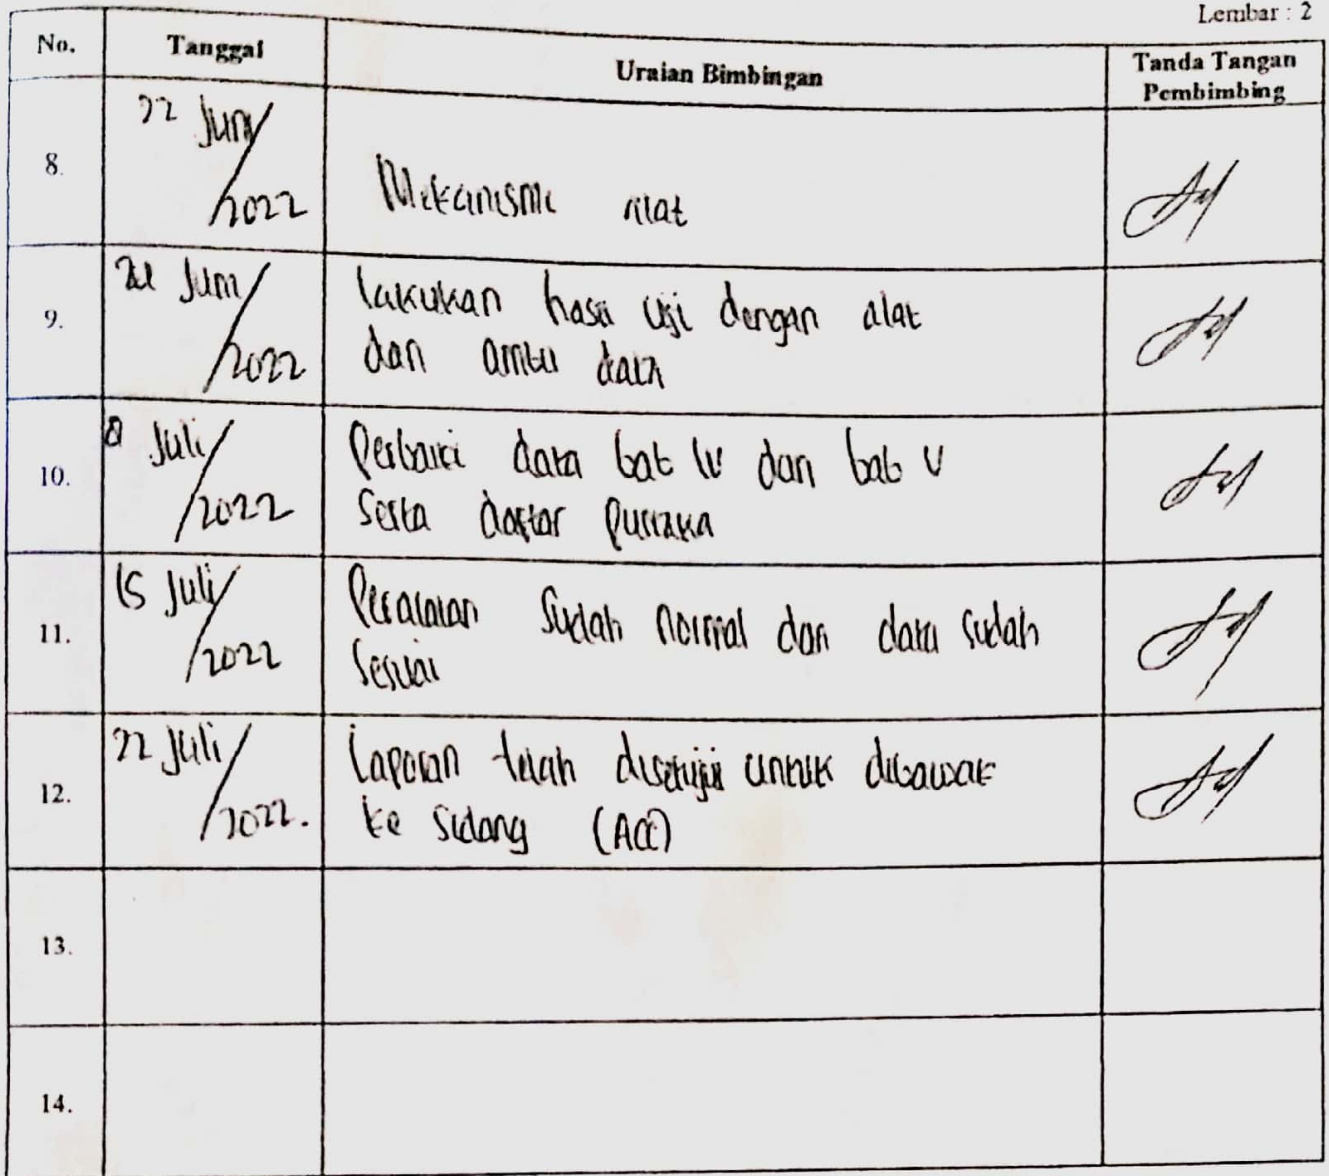 Lembar : 2
No. Tanggal Uraian Bimbingan Tanda Tangan
Pembimbing
8. 22 Juni
/2022 Mekanisme alat
9. Juni
/2022
lakukan hasil uji dengan alat
dan ambil data
10. 8 Juli
/2022
Perbaiki data bab IV dan bab V
Serta daftar pustaka
11. 15 Juli
/2022
Peralatan sudah normal dan data sudah
Sesuai
12. 22 Juli
/2022.
Laporan telah disetujui untuk dibawak
ke sidang (ACC)
13.
14.